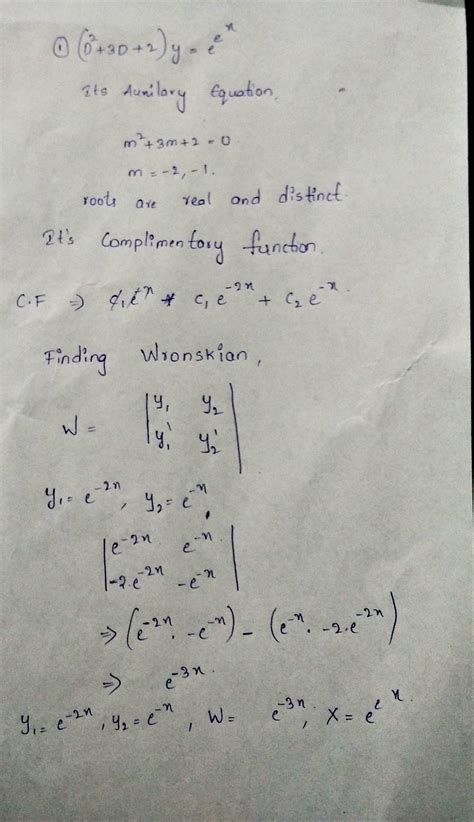 ① (D²+3D+2)y = e^e^x
Its Auxilary Equation.
m²+3m+2=0
m = -2, -1.
roots are real and distinct.
It's Complimentary function.
C.F ⇒ c₁e^-2x + c₂e^-x.
Finding Wronskian,
W = |y₁ y₂|
|y₁' y₂'|
y₁= e^-2x, y₂= e^-x
|e^-2x e^-x|
|-2.e^-2x -e^-x|
⇒ (e^-2x . -e^-x) - (e^-x . -2.e^-2x)
⇒ e^-3x.
y₁= e^-2x, y₂= e^-x, W= e^-3x, X= e^e^x.